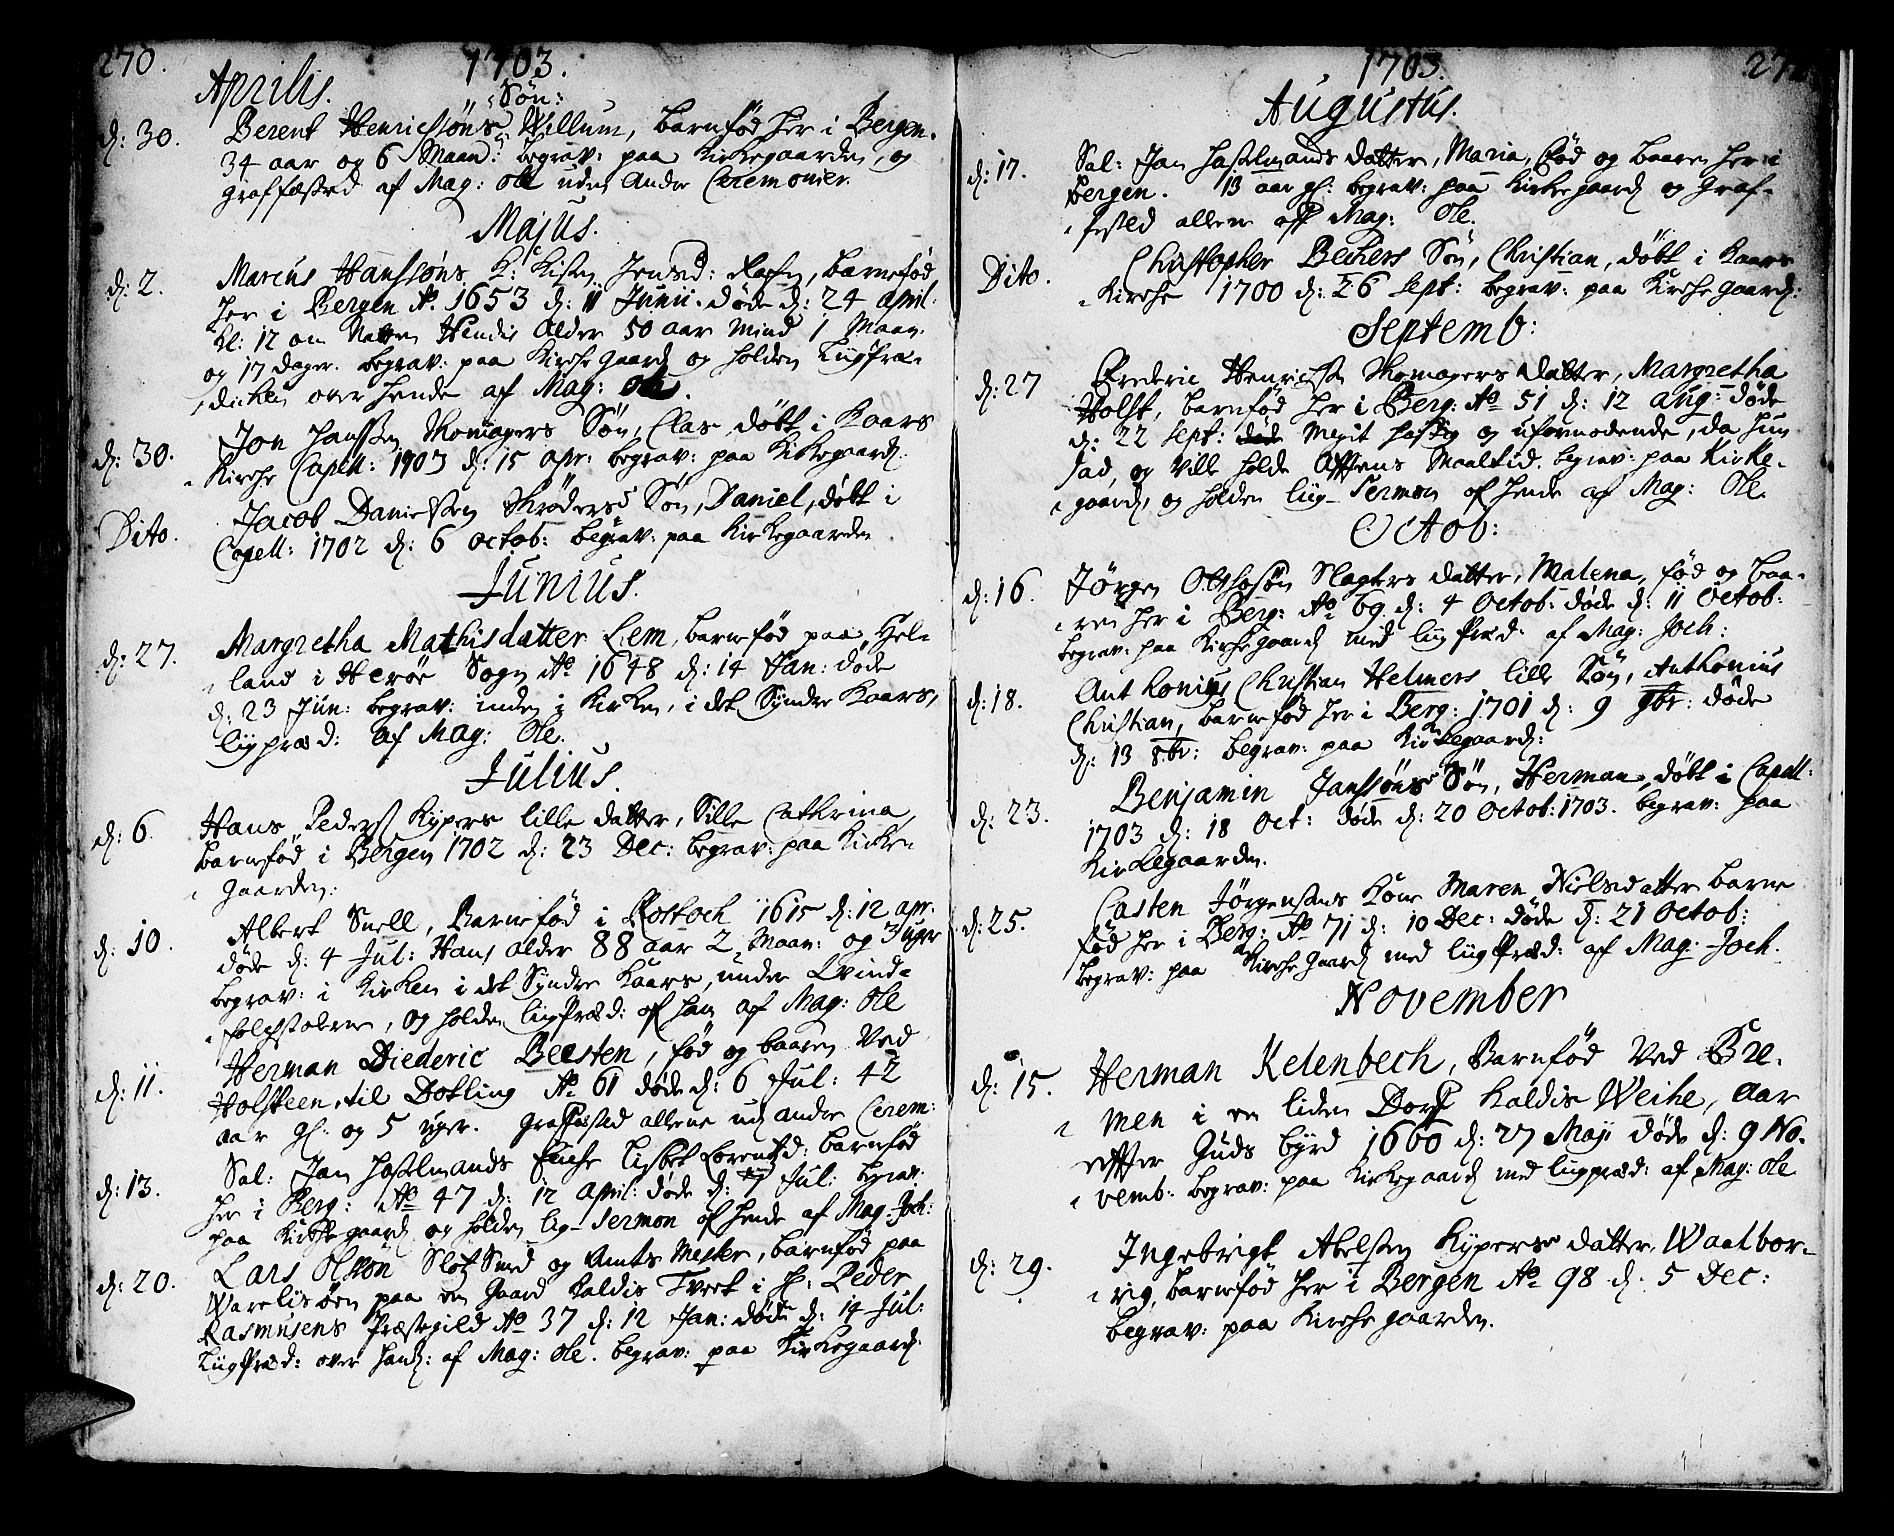 270. 1703.
Aprilis.
Søn:
d: 30. Berent Henrichsøns Willum, barnfød her i Bergen.
34 aar og 6 Maan: begrav: paa Kirkegaarden, og
graffæsted af Mag: Ole uden Andre Ceremonier.
Majus.
d: 2. Marcus Hanssøns K: Kisten Jensd: barnefød
her i Bergen Ao 1653 d: 11 Junii. døde d: 24 April.
kl: 12 om Natten Hendis Alder 50 aar mind 1 Maan.
og 17 dager. begrav: paa Kirche gaard og holden Liigpræ-
diken over hende af Mag: Ole.
d: 30. Jon Hanssen Skomagers Søn, Clas døbt i Kaars
Kirche Capell: 1703 d: 15 Apr: begrav: paa Kirkegaard.
Dito. Jacob Danielssen Skræders Søn, Daniel, døbt i
Capell: 1702 d: 6 Octob: begrav: paa Kirkegaarden
Junius.
d: 27. Margretha Mathisdatter Lem, barnefød paa Hel-
land i Herøe Sogn Ao 1648 d: 14 Jan: døde
d: 23 Jun: begrav: inden i Kirken, i det Syndre Kaars,
liigpræd: af Mag: Ole.
Julius.
d: 6. Hans Peders Kypers lille datter, Sille Cathrina,
barnefød i Bergen 1702 d: 23 Dec: begrav: paa Kirke-
gaarden:
d: 10. Albert Snell, Barnefød i Rostoch 1615 d: 12 apr:
døde d: 4 Jul: Hans alder 88 aar 2 Maan: og 3 uger
begrav: i Kirken i det Syndre Kaars, under Qvind-
folchstolene, og holden liigPræd: of: ham af Mag: Ole
d: 11. Herman Diederic Beesten, fød og baaren Ved
Holsteen, til Dotling Ao 61 døde d: 6 Jul: 42
aar gl: og 5 uger. Graffæsted allene ud andre Cerem:
d: 13. Sal: Jan Hasselmands Enche Lisbet Lorentsd: barnefød
her i Berg: Ao 47 d: 12 April: døde d: 7 Jul: begrav:
paa Kirche gaard og holden liig-Sermon of: hende af Mag: Joch:
d: 20. Lars Olsøn Slot Smed og Amts Mester, barnfød paa
paa en Gaard Kaldis Tveet i H: Peder
Rasmusens Præstegield Ao 37 d: 12 Jan: døde d: 14 Jul:
LiigPræd: over hand: af Mag: Ole. begrav: paa Kirkegaard.
1703.
Augustus.
d: 17. Sal: Jan Hasselmands datter, Maria, fød og baaren her i
Bergen. 13 aar gl: begrav: paa Kirke gaard og Graf-
fested allene aff Mag: Ole.
Dito. Christopher Bechers Søn, Christian, døbt i Kaars
Kirche 1700 d: 26 Sept: begrav: paa Kirche gaard:
Septemb:
d: 27 Frederic Henrichsen Skomagers datter, Margretha
Holst, barnfød her i Berg: Ao 51 d: 12 Aug: døde
d: 22 Sept: døde Megit hastig og uformodende, da hun
sad, og Ville holde Afftens Maaltid. begrav: paa Kirke-
gaard, og holden liig-Sermon of hende af Mag: Ole.
Octob:
d: 16. Jørgen Otthosøn Slagters datter, Malena, fød og baa-
ren her i Berg: Ao 69 d: 4 Octob: døde d: 11 Octob:
begrav: paa Kirche gaard med liigPræd: af Mag: Joch:
d: 18. Anthonius Christian Helmers lille Søn, Anthonius
Christian, barnefød her i Berg: 1701 d: 9 9br: døde
d: 13 8br: begrav: paa Kirkegaard:
d: 23. Benjamin Janssøns Søn, Herman, døbt i Capell:
1703 d: 18 Oct: døde d: 20 Octob: 1703. begrav: paa
Kirkegaarden.
d: 25. Casten Jørgensens Kone Maren Nielsdatter barne
fød her i Berg: Ao 71 d: 10 Dec: døde d: 21 Octob:
begrav: paa Kirche gaard med liigPræd: af Mag: Joch.
November
d: 15. Herman Kelenbech, Barnfød Ved Bre-
men i en liden Dorf Kaldis Weihe, Aar
effter Guds byrd 1660 d: 27 Maji døde d: 9 No-
vemb: begrav: paa Kirkegaard med liigpræd: af Mag: Ole
d: 29. Ingebrigt Abelsen Kypers datter Waalbor-
rig, barnefød her i Bergen Ao 98 d: 5 Dec:
begrav: paa Kirche gaarden.